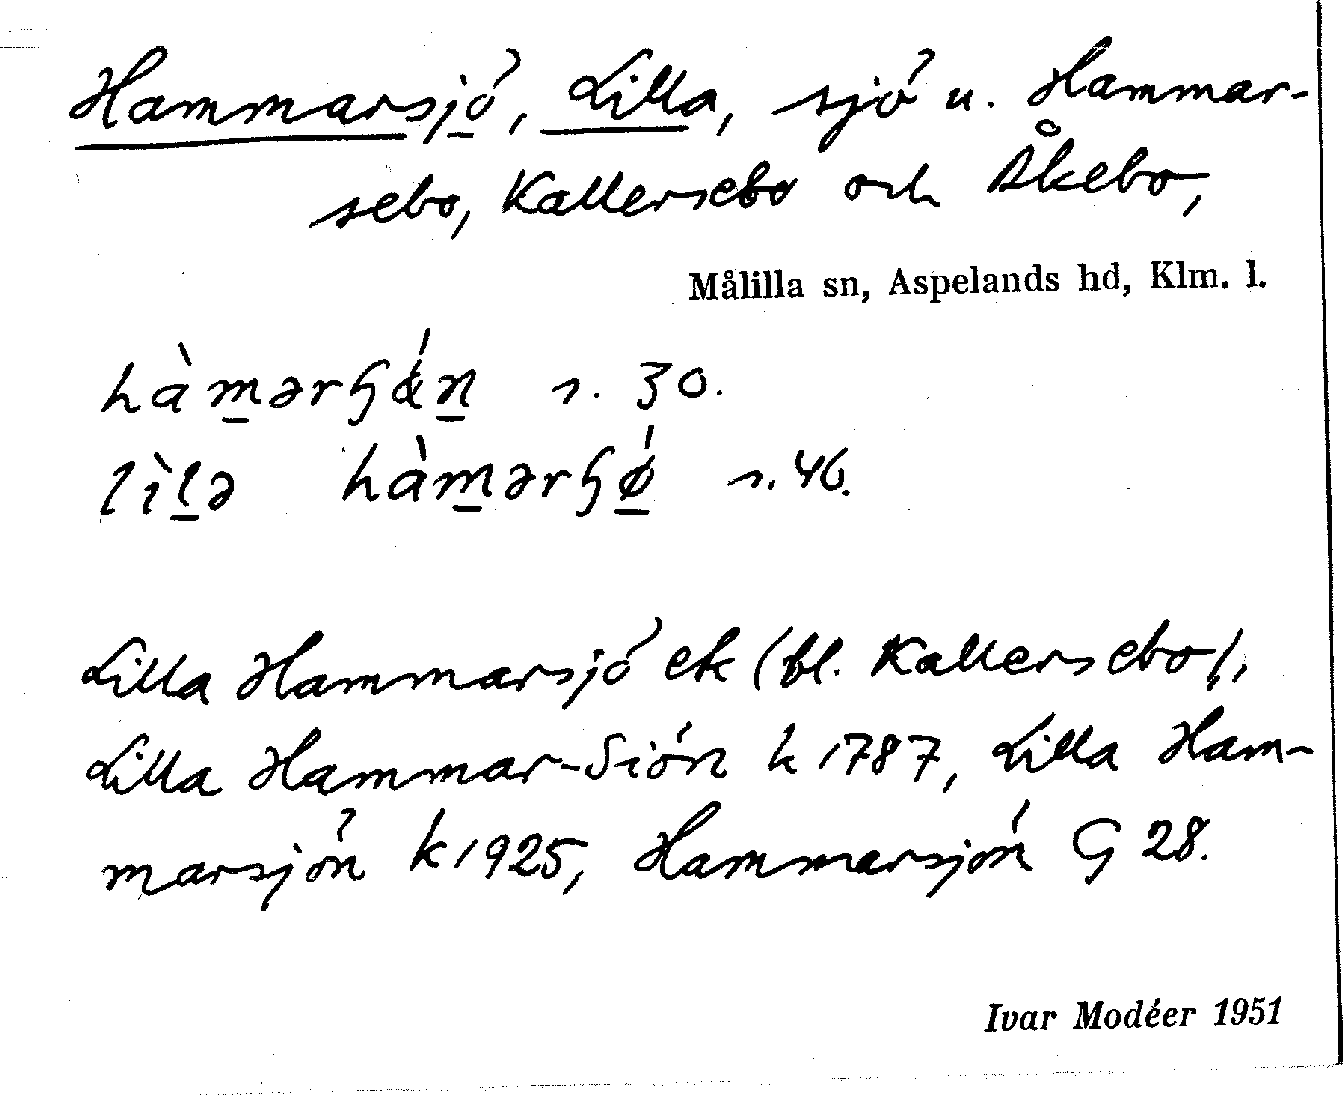 Hammarsjö, Lilla, sjö u. Hammar-
sebo, Kallersebo och Åkebo,
Målilla sn, Aspelands hd, Klm. l.
hàmərɧǿn s. 30.
lìlə hàmərɧǿ s. 46.
Lilla Hammarsjö ek (fl. Kallersebo),
Lilla Hammar-Siön k 1787, Lilla Ham-
marsjön k 1925, Hammarsjön G 28.
Ivar Modéer 1951